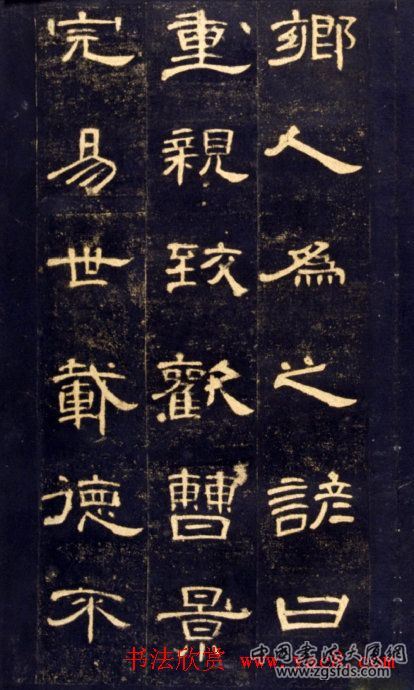 鄉人為之諺曰
重親致歡曹景
完易世載德不
书法欣赏 www.yac8.com
www.zgsfds.com